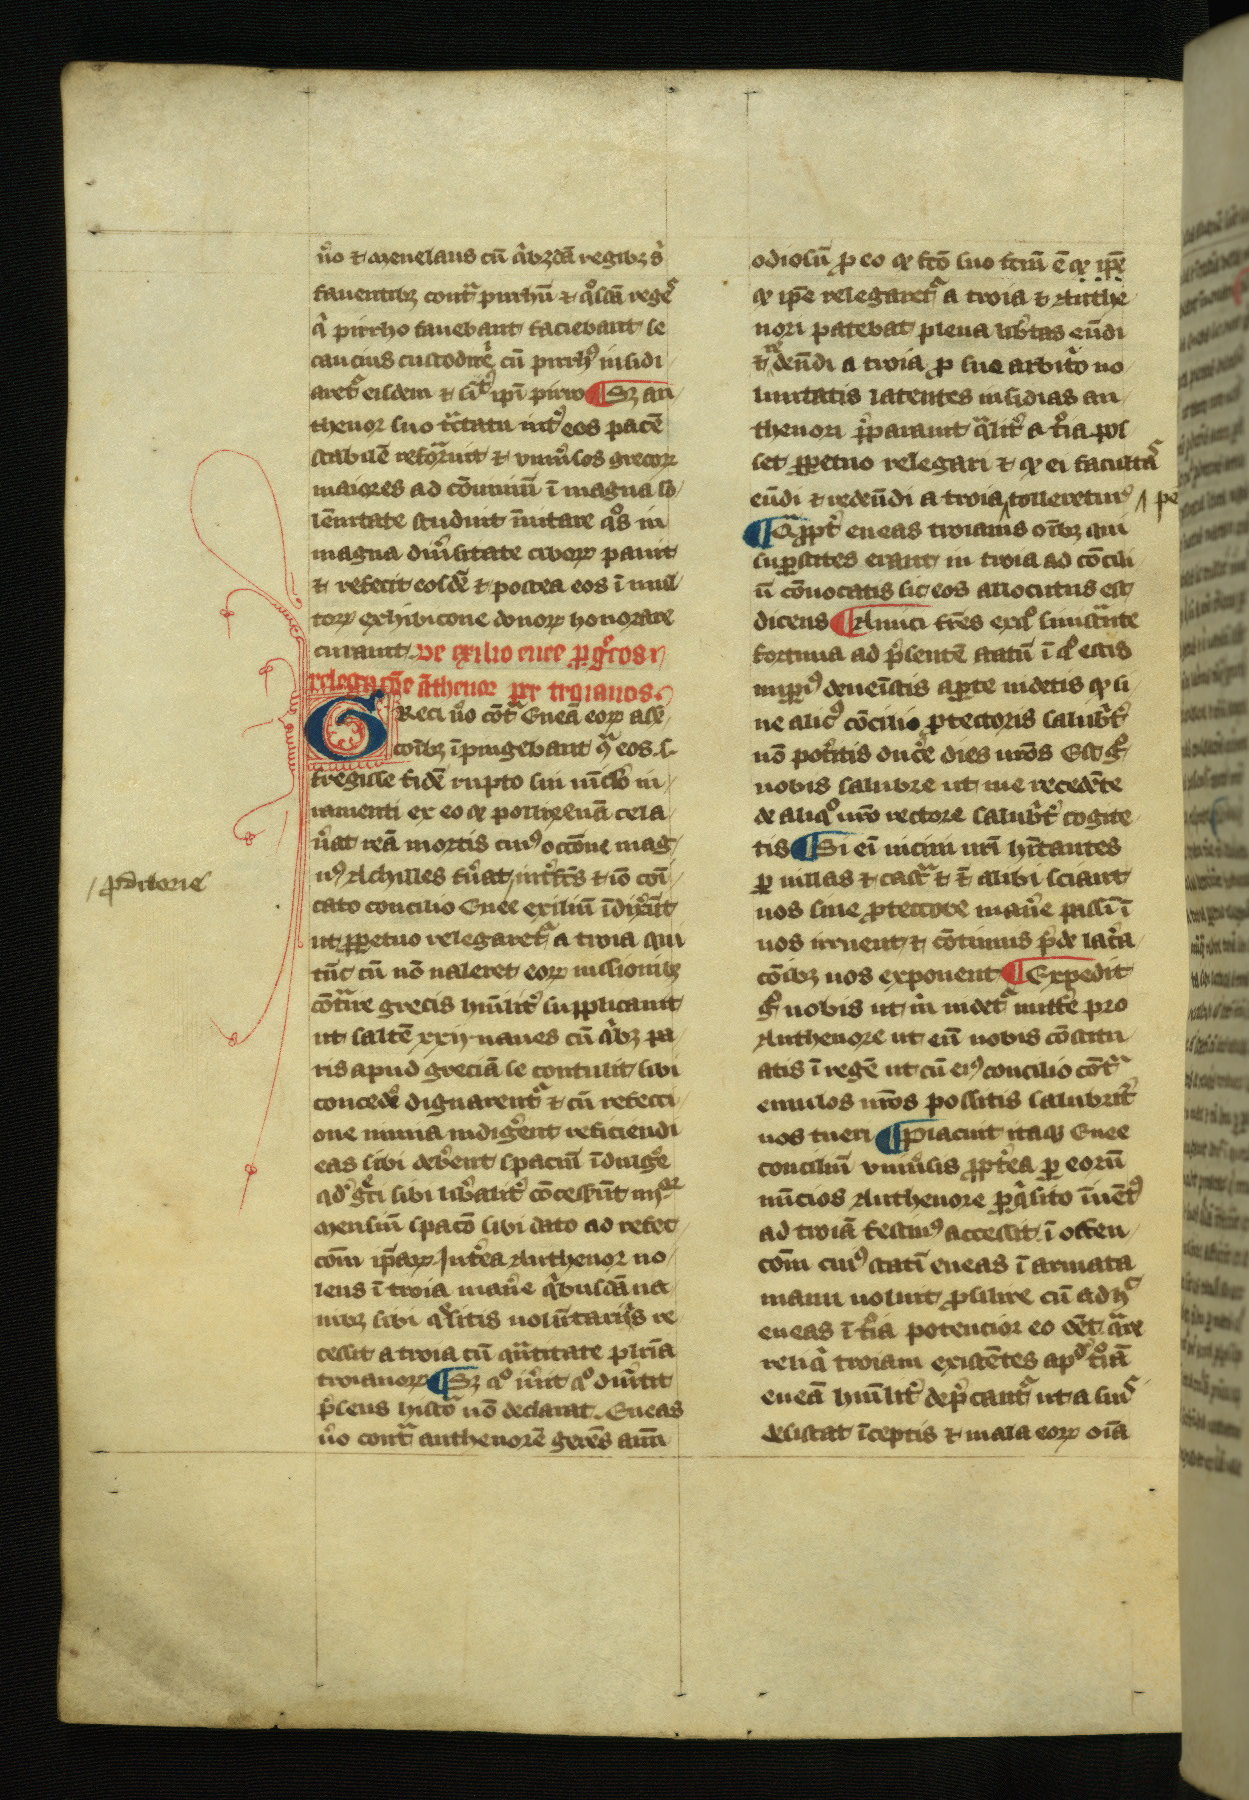 ỽo ⁊ Menelaus cū q̇bȝdā regibȝ ṡ
fauentibȝ cont̃ pirrhū ⁊ qͦsdā rege᷒
q̇ pirrho fauebant faciebant se
caucius custodire, cū pirrhꝰ insidi
aret᷑ eisdem ⁊ ip̄i pirro ¶ Sȝ an
thenor suo tͣctatu int̉ eos pacē
stabilē reformauit ⁊ vniu̾sos grecoꝝ
maiores ad cōuiuiū ī magna so
lēnitate studuit īuitare qͦs in
magna diu̾sitate ciboꝝ pauit
⁊ refecit eosdē ⁊ postea eos ī mul
toꝝ exhibicone donoꝝ honorare
curauit. De exilio enee ꝑ gͤcos ⁊
relegacōe āthenor per troianos.
GReci ỽo cōt̃ Eneā eoꝝ asp̄
conibȝ īpingebant qͣ eos. s.
fregisse fidē rupto sui vīclo iu
ramenti ex eo ꝙ pollixenā cela
u̾at reā mortis cuiꝰ occōne mag
nꝰ Achilles fu̾at int̾fc̄s ⁊ iō cōi
cato concilio Enee exiliū īdixer̄t
ut ꝑpetuo relegaret᷑ a troia qui
tūc cū nō ualeret eoꝝ iussionibȝ
cōt̃ire grecis hūilit̾ supplicauit
ut saltē xxij naues cū q̇bȝ pa
ris apud greciā se contulit sibi
conced̾e dignarent᷑ ⁊ cū refecci
one nimia indig̾ent reficiendi
eas sibi deb̾ent spaciū īdulg̾e
qd̾ gͤci sibi lib̾alit̾ cōcesserūt
Mensiū spacō sibi dato ad refec
cōm ip̄aꝝ Int̾ea Anthenor no
lens ī troia man̾e q̇busdā na
uibȝ sibi q̄sitis uolūtarius re
cessit a troia cū q̄ntitate plr̄iā
troianoꝝ ¶ Sȝ qͦ iu̾it qͦ diu̾tit
p̄sens histōa nō declarat. Eneas
ỽo cont̃ anthenorē gerēs aīm
/ ꝓditorie
odiosū ꝓ eo ꝙ fc̄o suo fc̄m ē ꝙ ip̄e
ꝙ ip̄e relegaret᷑ a troia ⁊ Anthe
nori patebat plena lib̾tas eūdi
⁊ redeūdi a troia ꝓ sue arbit̾o uo
luntatis latentes insidias an
thenori p̄parauit qͣlit̾ a t̾ra pos
set ꝑpetuo relegari ⁊ ꝙ ei facultas
eūdi ⁊ redeūdi a troia tolleretur / pe
¶ Qͣꝓpt̾ eneas troianis oībȝ qui
suꝑstites erant in troia ad cōcili
ū cōuocatis sic eos allocutus est
dicens ¶ Amici fr̄es exqͦ simulāte
fortuna ad p̄sentē statū ī qͦ estis
nuꝑ deuēistis aꝑte uidetis ꝙ si
ne alicꝰ cōcilio ꝓtectoris salubrit̾
nō pot̾itis duc̾e dies uros Est gͦ
uobis salubre ut me recedēte
de aliqͦ uro rectore salubrit̾ cogite
tis ¶ Si eī uicini uri hītantes
ꝑ uillas ⁊ castͣ ⁊ ī alibi sciant
uos sine ꝓtectore man̾e passī ī
uos irruent ⁊ cōtinuis p̄de lac̾a
cōibȝ uos exponent ¶ Expedit
gͦ uobis ut m̄ uidet᷑ mitt̾e pro
Anthenore ut eū uobis cōstitu
atis ī regē ut cū eiꝰ concilio cōt̃
emulos uros possitis salubrit̾
uos tueri ¶ Placuit itaqȝ Enee
conciliū vniu̾sis ꝓpt̾ea ꝑ eorū
nūcios Anthenore ꝑq̇sito īuētꝰ
ad troiā festinꝰ accessit ī occu
cōm cuiꝰ statī eneas ī armata
manu uoluit ꝓsilire cū adhͨ
eneas ī t̾ra potencior eo eēt qͣre
reliq̇ troiam existētes apd̾ troiā
eneā hūilit̾ dep̄cant᷑ ut a suis
desistat īceptis ⁊ mala eoꝝ oīa